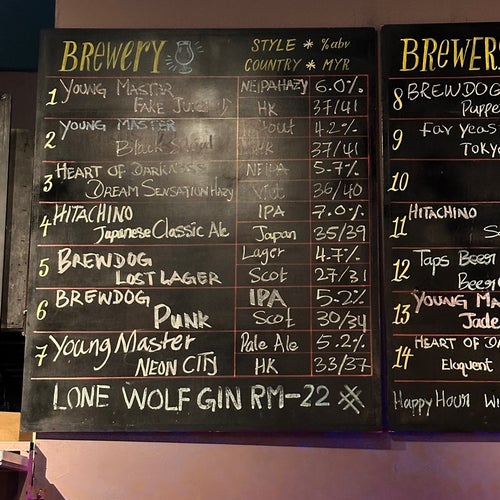 BREWERY STYLE * %abv
COUNTRY * MYR
1 Young Master NEIPA HAZY 6.0%
HK 37/41
2 Young Master 4.2%
Black 37/41
3 Heart of Darkness NEIPA 5.7%
Dream Sensation Hazy Viet 36/40
4 HITACHINO IPA 7.0%
Japanese Classic Ale Japan 35/39
5 BREWDOG Lager 4.7%
LOST LAGER Scot 27/31
6 BREWDOG IPA 5.2%
PUNK Scot 30/34
7 Young Master Pale Ale 5.2%
NEON CITY HK 33/37
LONE WOLF GIN RM-22
BREWER
8 BREWDOG
9 Far Yeas
TOKYO
10
11 HITACHINO
12 Taps Beer
Beer
13 YOUNG MA
Jade
14 HEART OF DA
Eloquent
Happy Hour Wi